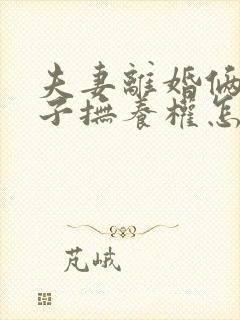 夫妻離婚俩
子撫養權怎
芃峨